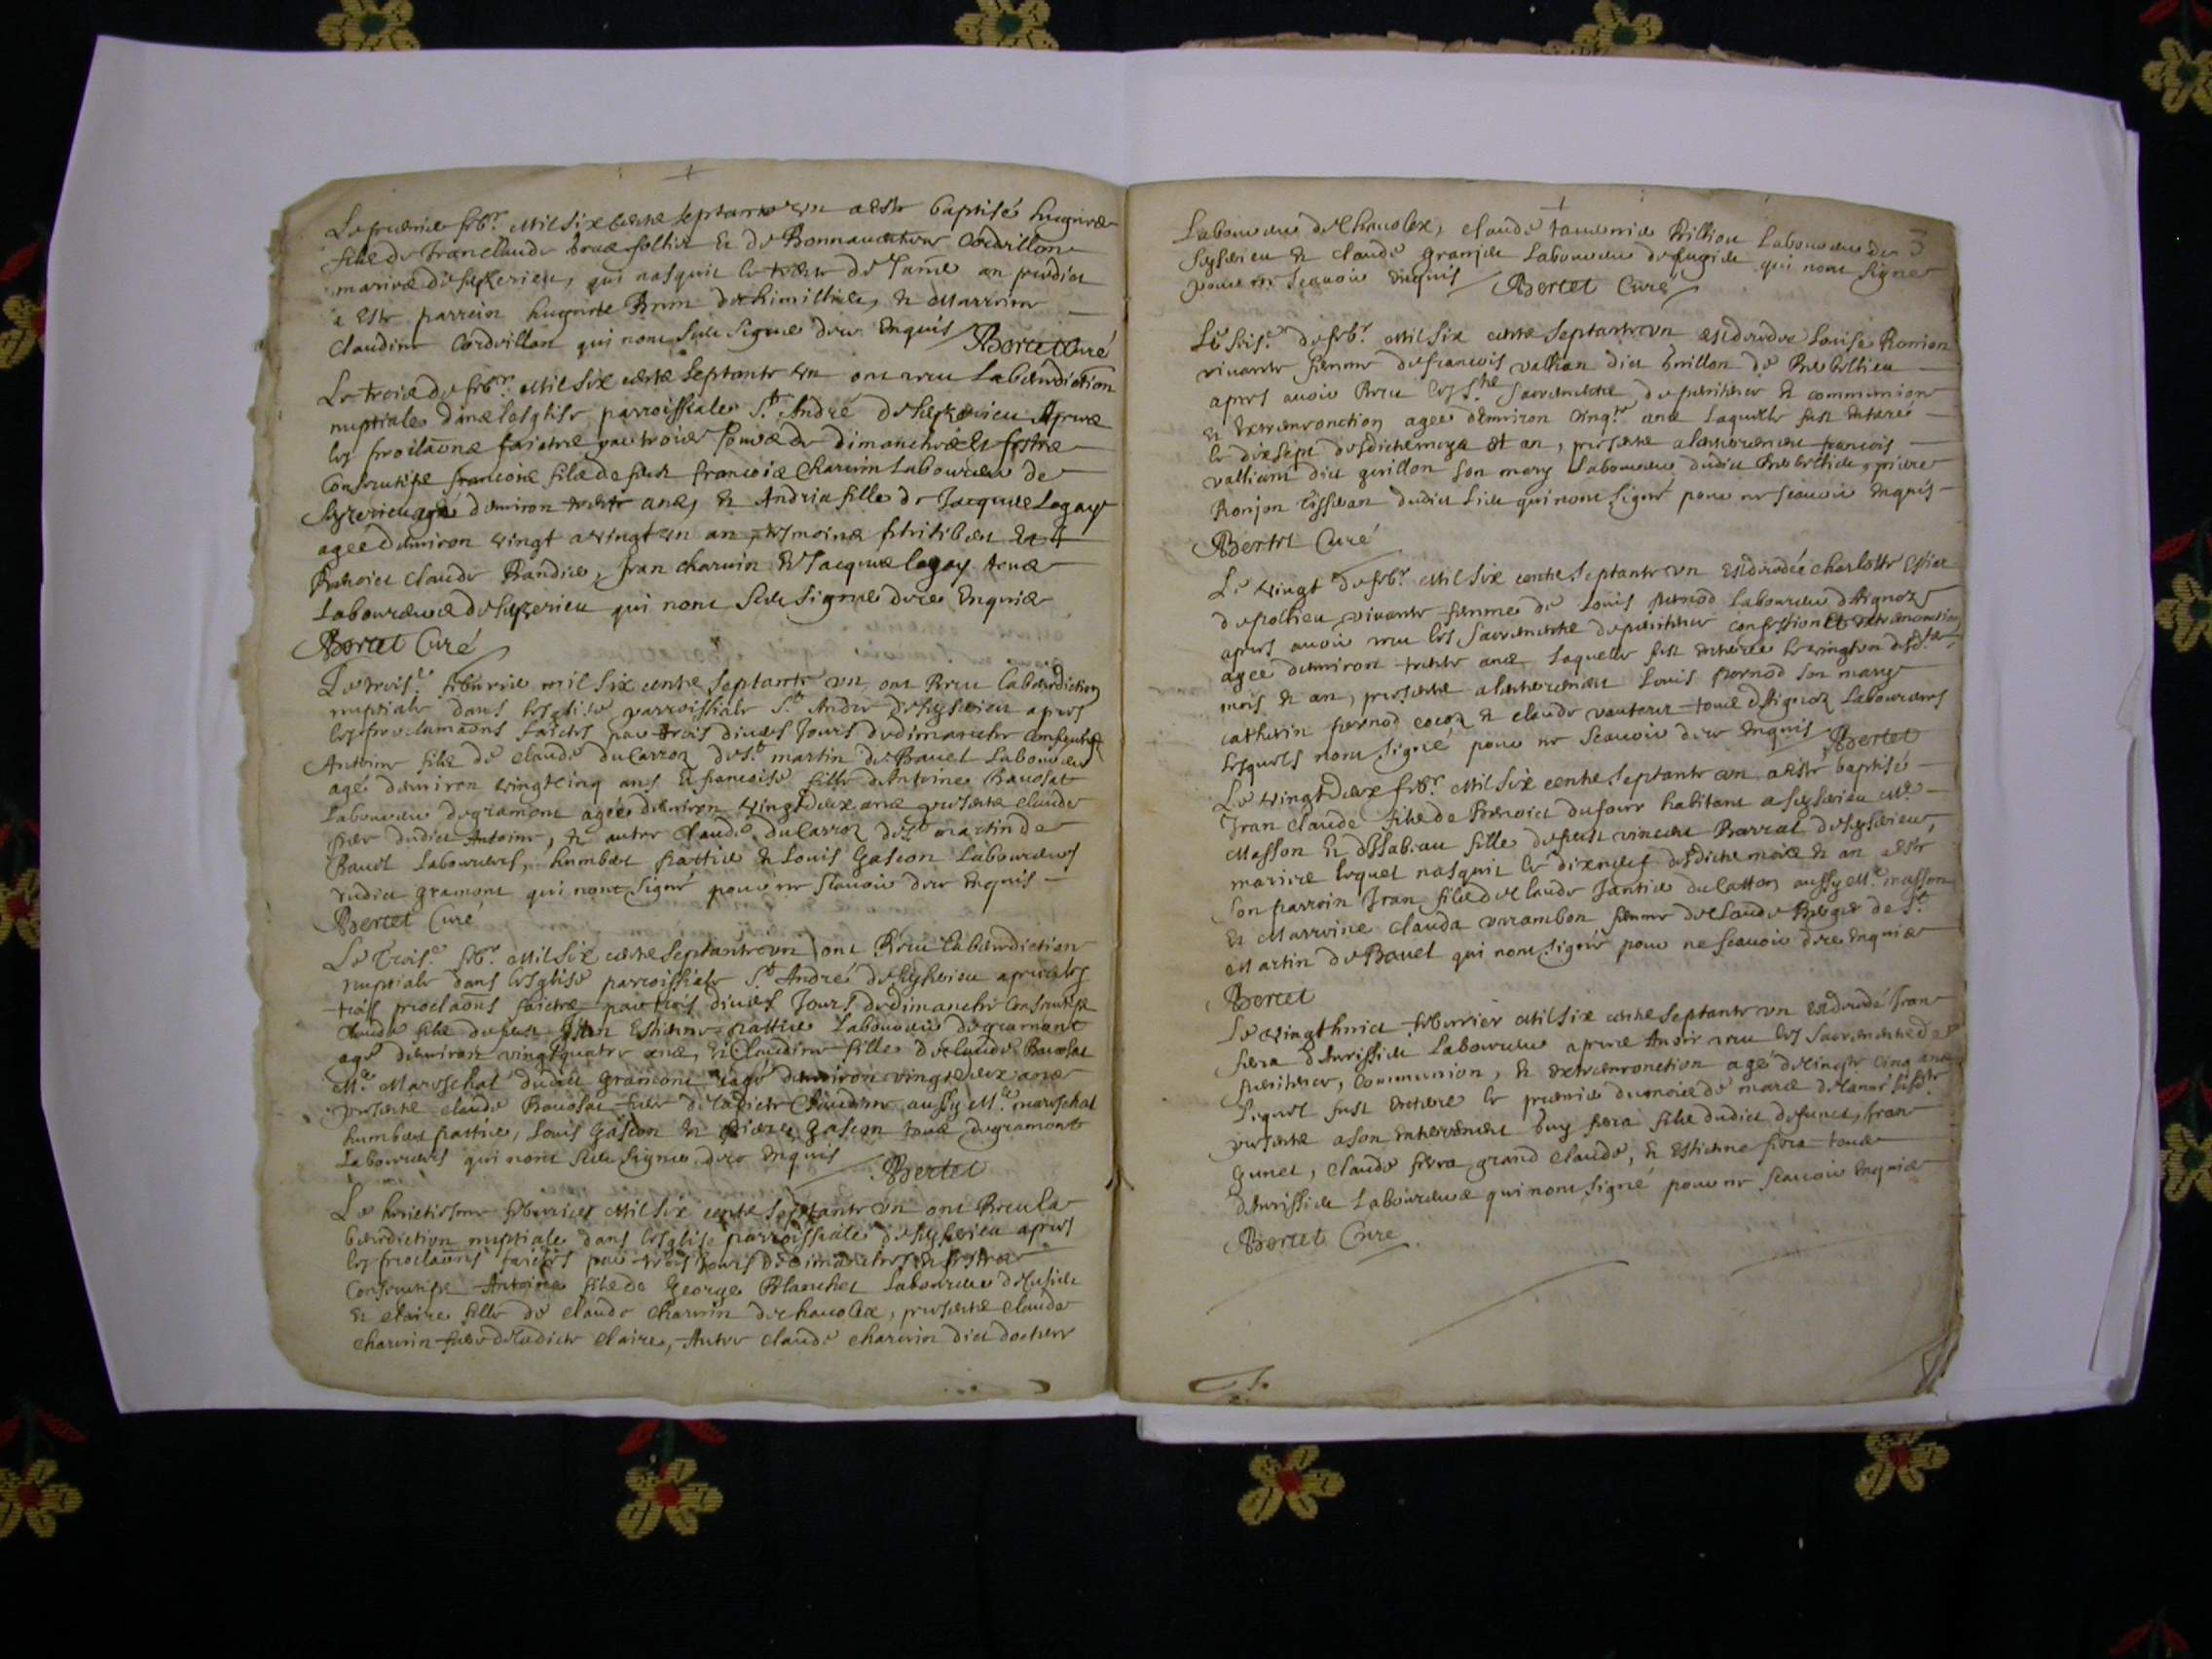 Le premier febr. mil six cents septante un a esté baptisé
fils de Jean Claude et de Bonnaventure Cordvillon
mariés de Seyzerieu, qui nasquit le trente de Janv. an predict
a esté parrein hugues et Marrine
Claudine Cordvillon qui n'ont sceu signer de ce enquis Bertet Curé
Le trois de febr. mil six cents septante un ont receu la benediction
nuptiale dans l'esglise parroissiale St André de Seyzerieu Apres
les proclaōns faictes par trois jours de dimanches et festes
consecutifs francois fils de feu francois Charvin laboureur de
Seyzerieu agé d'environ trente ans, et Andria fille de Jacques Legay
agee d'environ vingt a vingt un an, tesmoins et
Benoict Claude, Jean Charvin et Jacques Legay tous
laboureurs de Seyzerieu qui n'ont sceu signer de ce enquis
Bertet Curé
Le trois.e febvrier mil six cents septante un, ont Receu la benediction
nuptiale dans l'esglise parroissiale St Andre de Seyzerieu apres
les proclamaōns faictes par trois divers Jours de dimanche consecutifs
Antoine fils de Claude du Carroz de St martin de Bavel Laboureur
agé d'environ vingt cinq ans et francoise fille d'Antoine Bavosat
Laboureur de gramont agée d'environ vingt deux ans presents Claude
pere dudict Antoine, et autre Claude du Carroz de St martin de
Bavel laboureurs, humbert frattier et Louis Gascon Laboureurs
dudict gramont qui n'ont signé pour ne scavoir de ce enquis
Bertet Curé
Le Trois.e febr. mil six cents septante un ont Receu la benediction
nuptiale dans l'esglise parroissiale St André de Seyzerieu apres les
trois proclaōns faictes par trois divers Jours de dimanche consecutifs
Claude fils de feu Estienne frattier Laboureur de gramont
agé d'environ vingt quatre ans, et Claudine fille de Claude Bavosat
M.e Mareschal dudict gramont agée d'environ vingt deux ans
presents Claude Bavosat pere de ladicte Claudine aussy M.e mareschal
humbert frattier, Louis Gascon et pierre Gascon tous de gramont
Laboureurs qui n'ont sceu signer de ce enquis Bertet
Le huictiesme febvrier mil six cents septante un ont Receu la
benediction nuptiale dans l'esglise parroissiale de Seyzerieu apres
les proclaōns faictes par trois Jours de dimanches et festes
consecutifs Antoine fils de George Blanchet Laboureur
et Claire fille de Claude Charvin de chavolex, presents Claude
Charvin pere de ladicte Claire, Autre Claude Charvin dict
3
Laboureurs de Chavolex, Claude Laboureur de
Seyzerieu et Claude granjer Laboureur qui n'ont signé
pour ne scavoir enquis Bertet Curé
Le febr. mil six cents septante un est decedee Louise Ronjon
vivante femme de francois vallian dict
apres avoir Receu les sts sacrements de penitence et communion
et extremeonction agee d'environ ans laquelle fust enterée
le dix sept desdicts moys et an, presents a l'enterrement francois
vallian dict son mary laboureur dudict, pierre
Ronjon tisseran dudict lieu qui n'ont signé pour ne scavoir enquis
Bertet Curé
Le vingt de febr. mil six cents septante un est decedée Charlotte
de pollieu vivante femme de Louis pernod laboureur d'Aignoz
apres avoir receu les sacrements de penitence confession et extremeonction
agee d'environ trente ans laquelle fust enterrée le vingt un desd.
mois et an, presents a l'enterrement Louis pernod son mary
Catherin pernod et Claude vauterer tous d'Aignoz Laboureurs
lesquels n'ont signé pour ne scavoir de ce enquis Bertet
Le vingt deux febr. mil six cents septante un a esté baptisé
Jean Claude fils de Benoict dufour habitant a Seyzerieu M.e
Masson et d'Isabeau fille de feu vincent Barrat de Seyzerieu
mariés lequel nasquit le dixneuf desdicts mois et an a esté
son parroin Jean fils de Claude Jantin du Catton aussy M.e masson
et Marroine Clauda varambon femme de Claude Berger de St
Martin de Bavel qui n'ont signé pour ne scavoir de ce enquis
Bertet
Le vingthuict febvrier mil six cents septante un est decedé Jean
fiera Laboureur apres avoir receu les sacrements de
penitence, communion, et extremeonction agé de cinquante cinq ans
lequel fust enterré le premier du mois de mars de l'année
presents a son enterrement Guy fiera fils dudict defunct, Jean
Gunet, Claude fiera grand Claude, et Estienne fiera tous
Laboureurs qui n'ont signé pour ne scavoir enquis
Bertet Cure